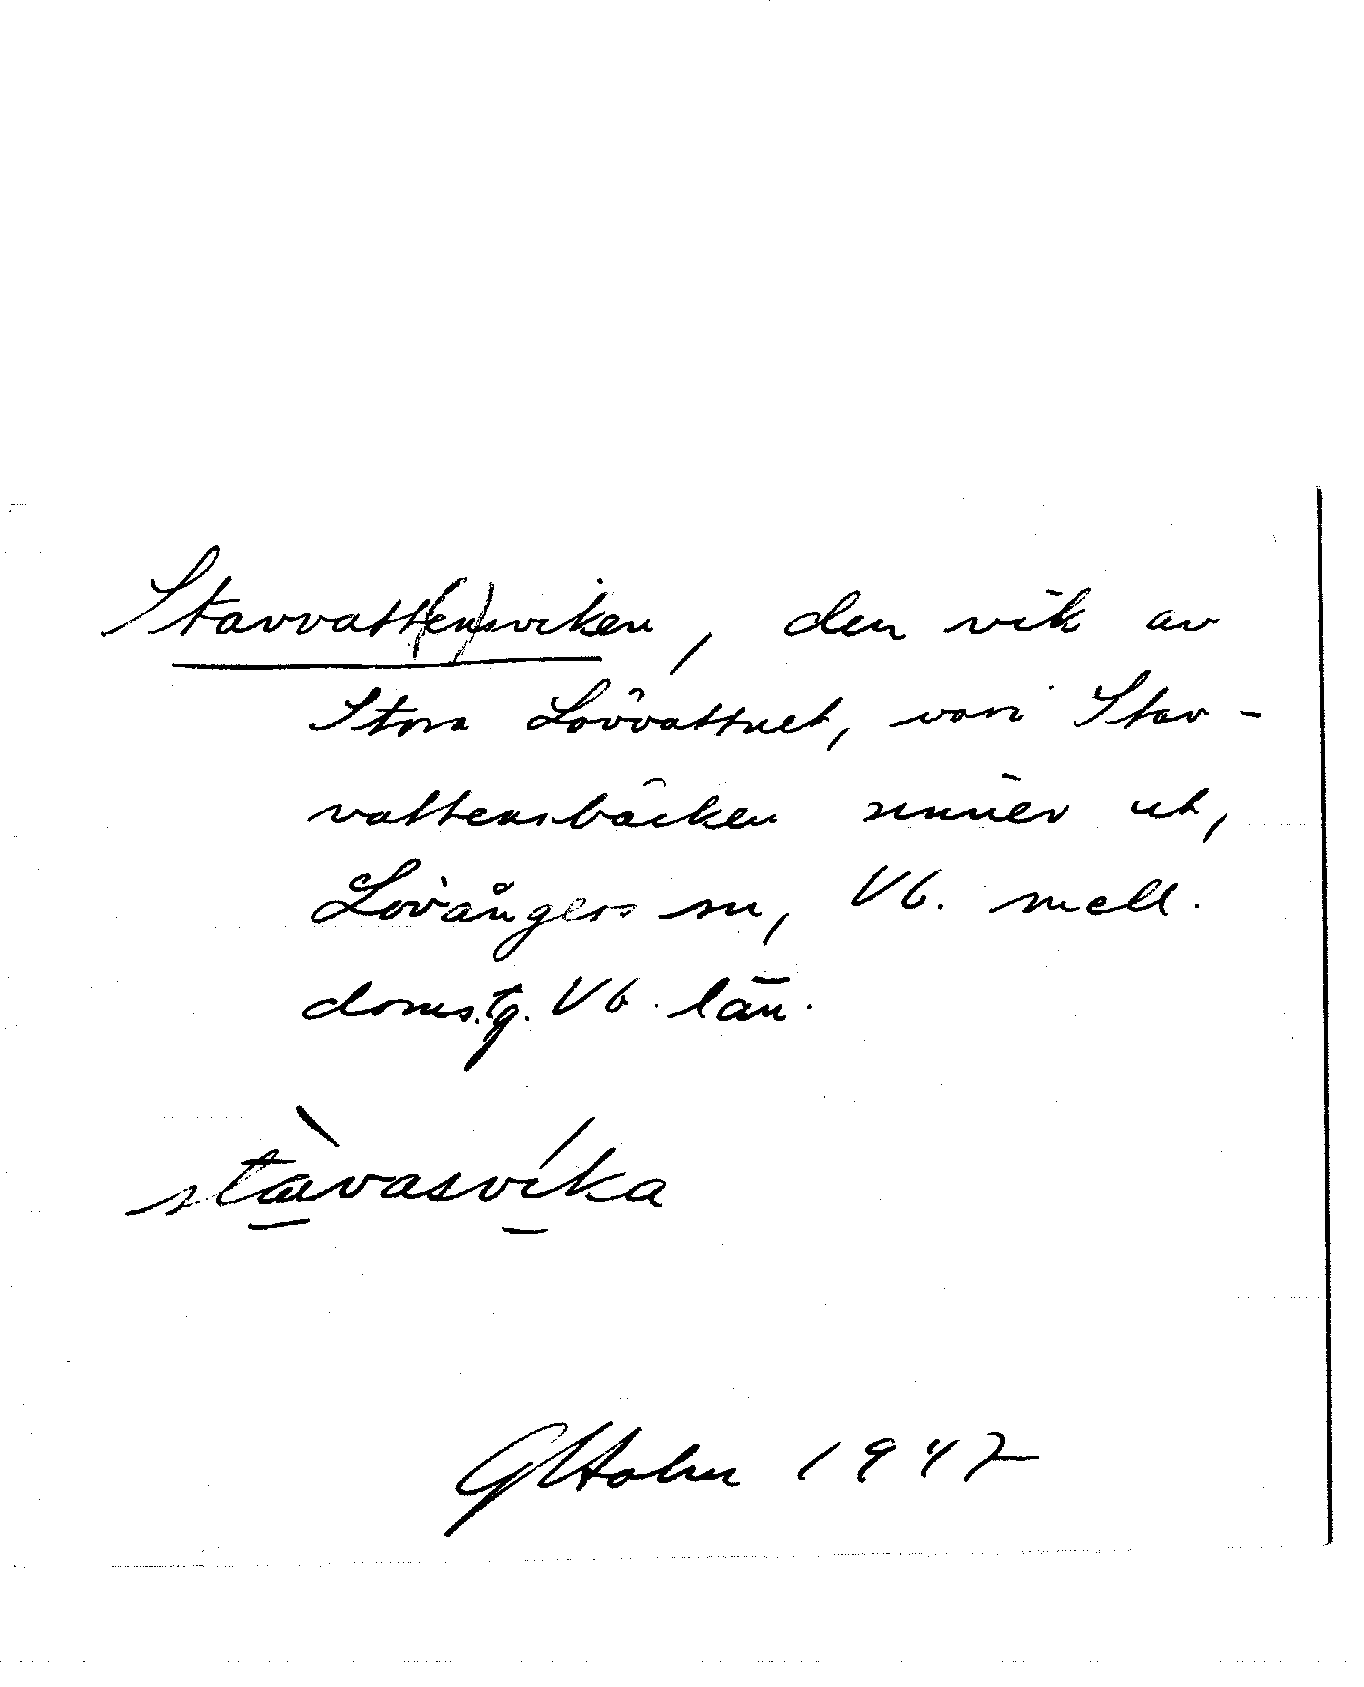 Stavvatt(en)sviken, den vik av
Stora Lövvattnet, vari Stav-
vattensbäcken rinner ut,
Lövångers sn, Vb. mell.
doms.tg. Vb. län.
stàvasvíka
G Holm 1947